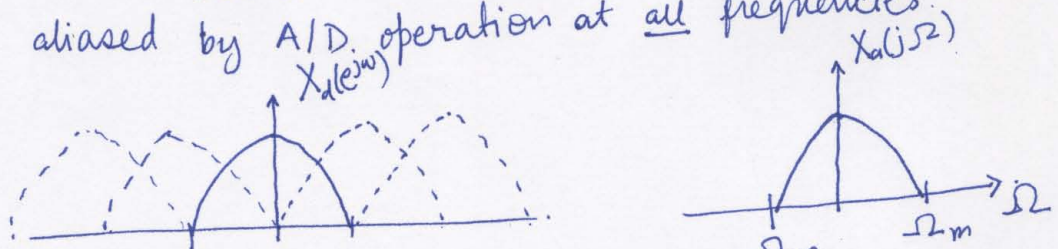 aliased by A/D. operation at all frequencies.
X_d(e^{jω})
X_a(jΩ)
Ω_m
Ω